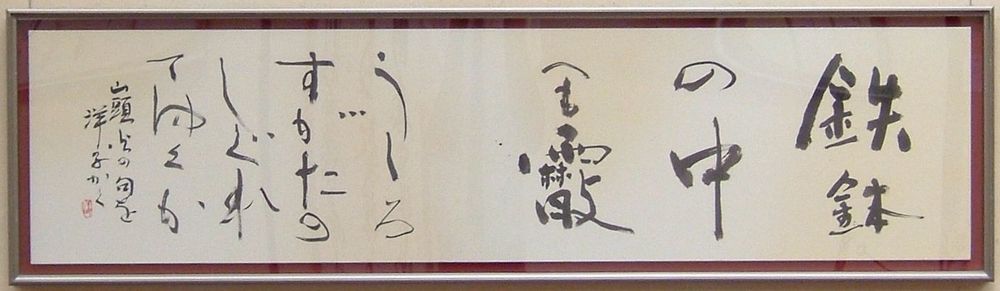 鉄鉢
の中
へも霰
うしろ
すがたの
しぐれ
てゆくか
山頭火の句を
洋子かく